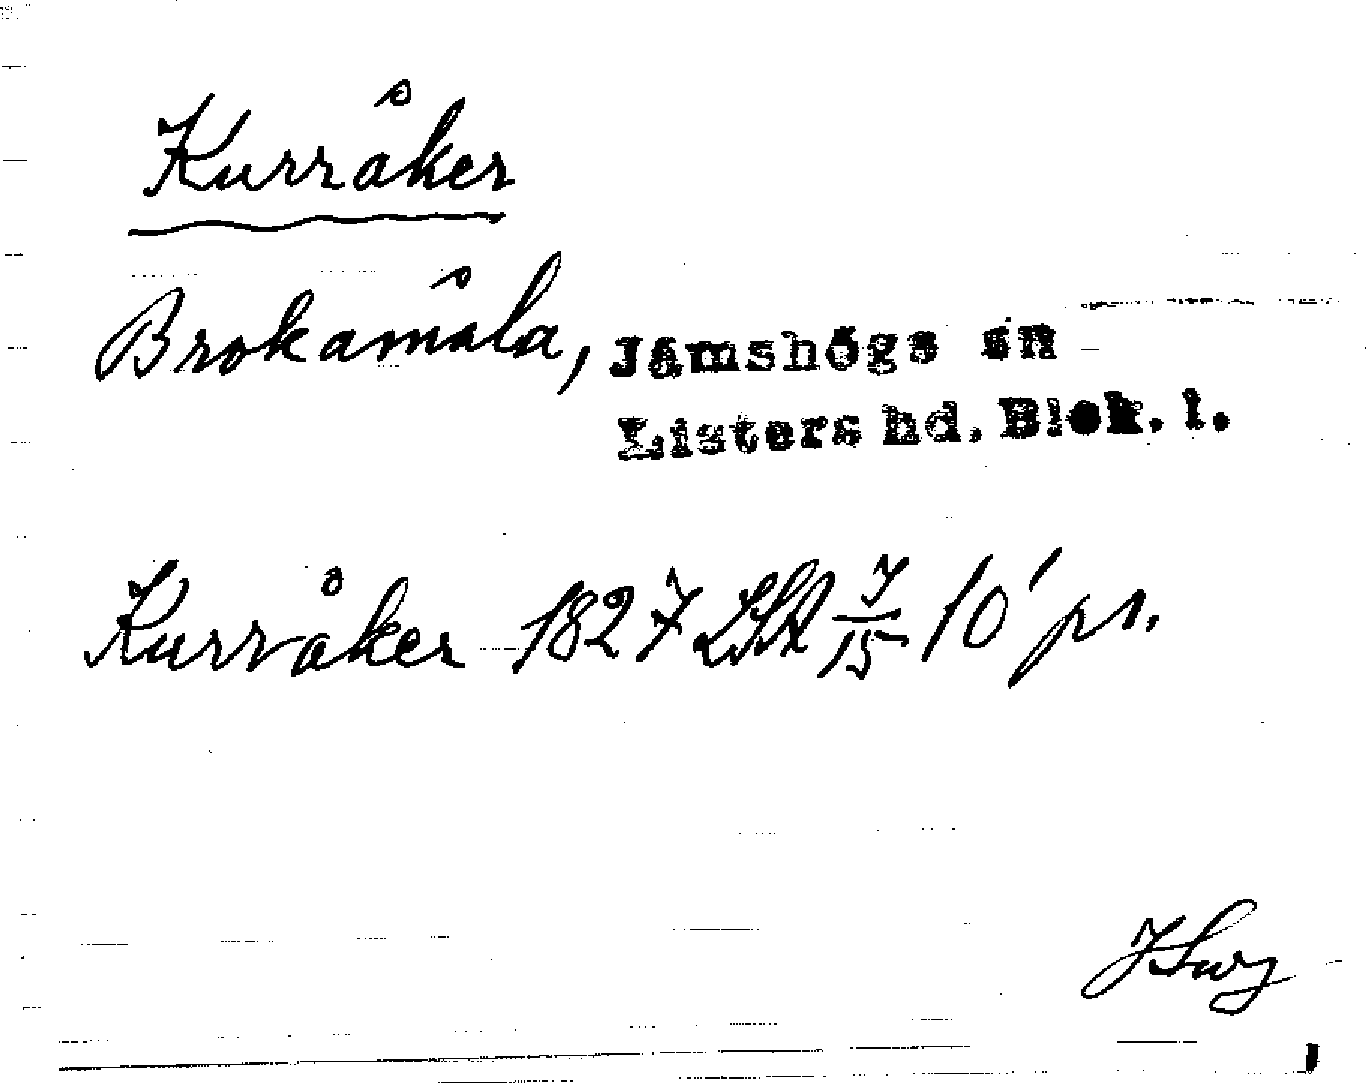 Kurråker
Brokamåla, Jämshögs sn
Listers hd. Blek. l.
Kurråker 1827 LSA J/15 10' ps.